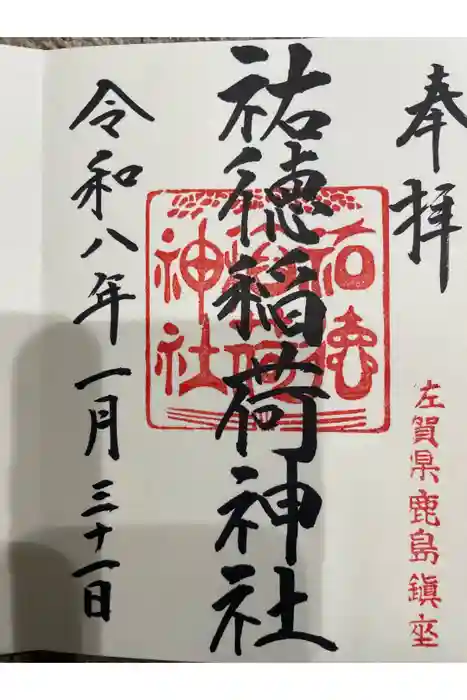 奉拝
左賀県鹿島鎮座
祐徳稲荷神社
祐徳
稲荷
神社
令和八年一月三十一日